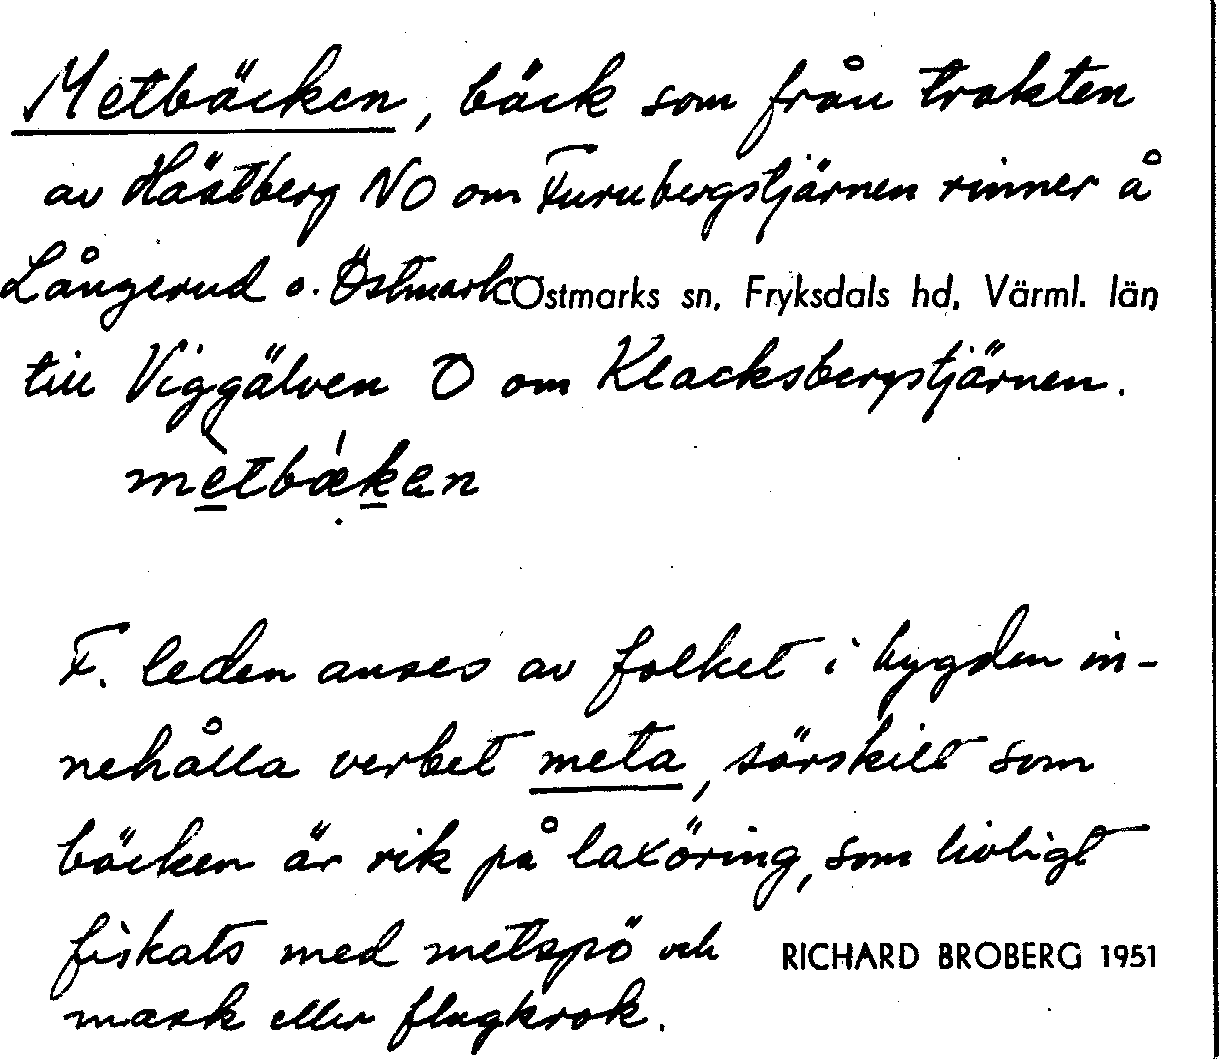 Metbäcken, bäck som från trakten
av Hästberg NO om Furubergstjärnen rinner å
Långerud o. Östmark Östmarks sn, Fryksdals hd, Värml. län
till Viggälven O om Klacksbergstjärnen.
mètbækan
F. leden anses av folket i bygden in-
nehålla verbet meta, särskilt som
bäcken är rik på laxöring, som livligt
fiskats med metspö och RICHARD BROBERG 1951
mask eller flugkrok.